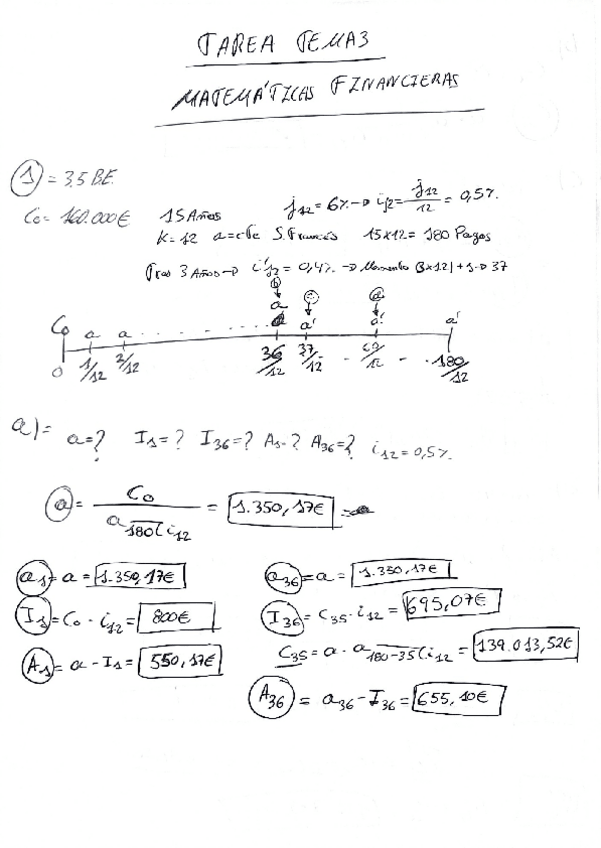 TAREA TEMA3
MATEMÁTICAS FINANCIERAS
1 = 3,5 BE.
C0 = 160.000€ 15 Años j12 = 6% → i12 = j12/12 = 0,5%.
K=12 a=cte S. Francés 15x12 = 180 Pagos
Tras 3 Años → i'12 = 0,4% → Momento (3x12)+1 → 37
C0 a a . . . a a' a' a'
0 1/12 2/12 36/12 37/12 - - 180/12
a) = a=? I1=? I36=? A1=? A36=? i12=0,5%.
a = C0 / a180 i12 = 1.350,17€
a1 = a = 1.350,17€
a36 = a = 1.350,17€
I1 = C0 · i12 = 800€
I36 = C35 · i12 = 695,07€
C35 = a · a180-35 i12 = 139.013,52€
A1 = a - I1 = 550,17€
A36 = a36 - I36 = 655,10€